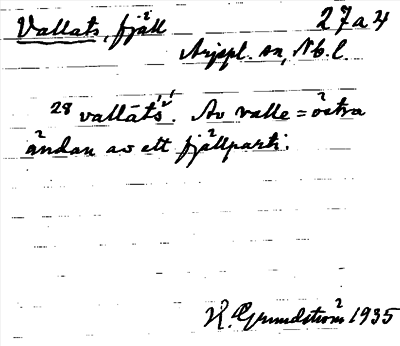 Vallats, fjäll 27a4
Arjepl. sn, Nb. l.
28 vallāts'. Av valle = östra
ändan av ett fjällparti.
H. Grundström 1935